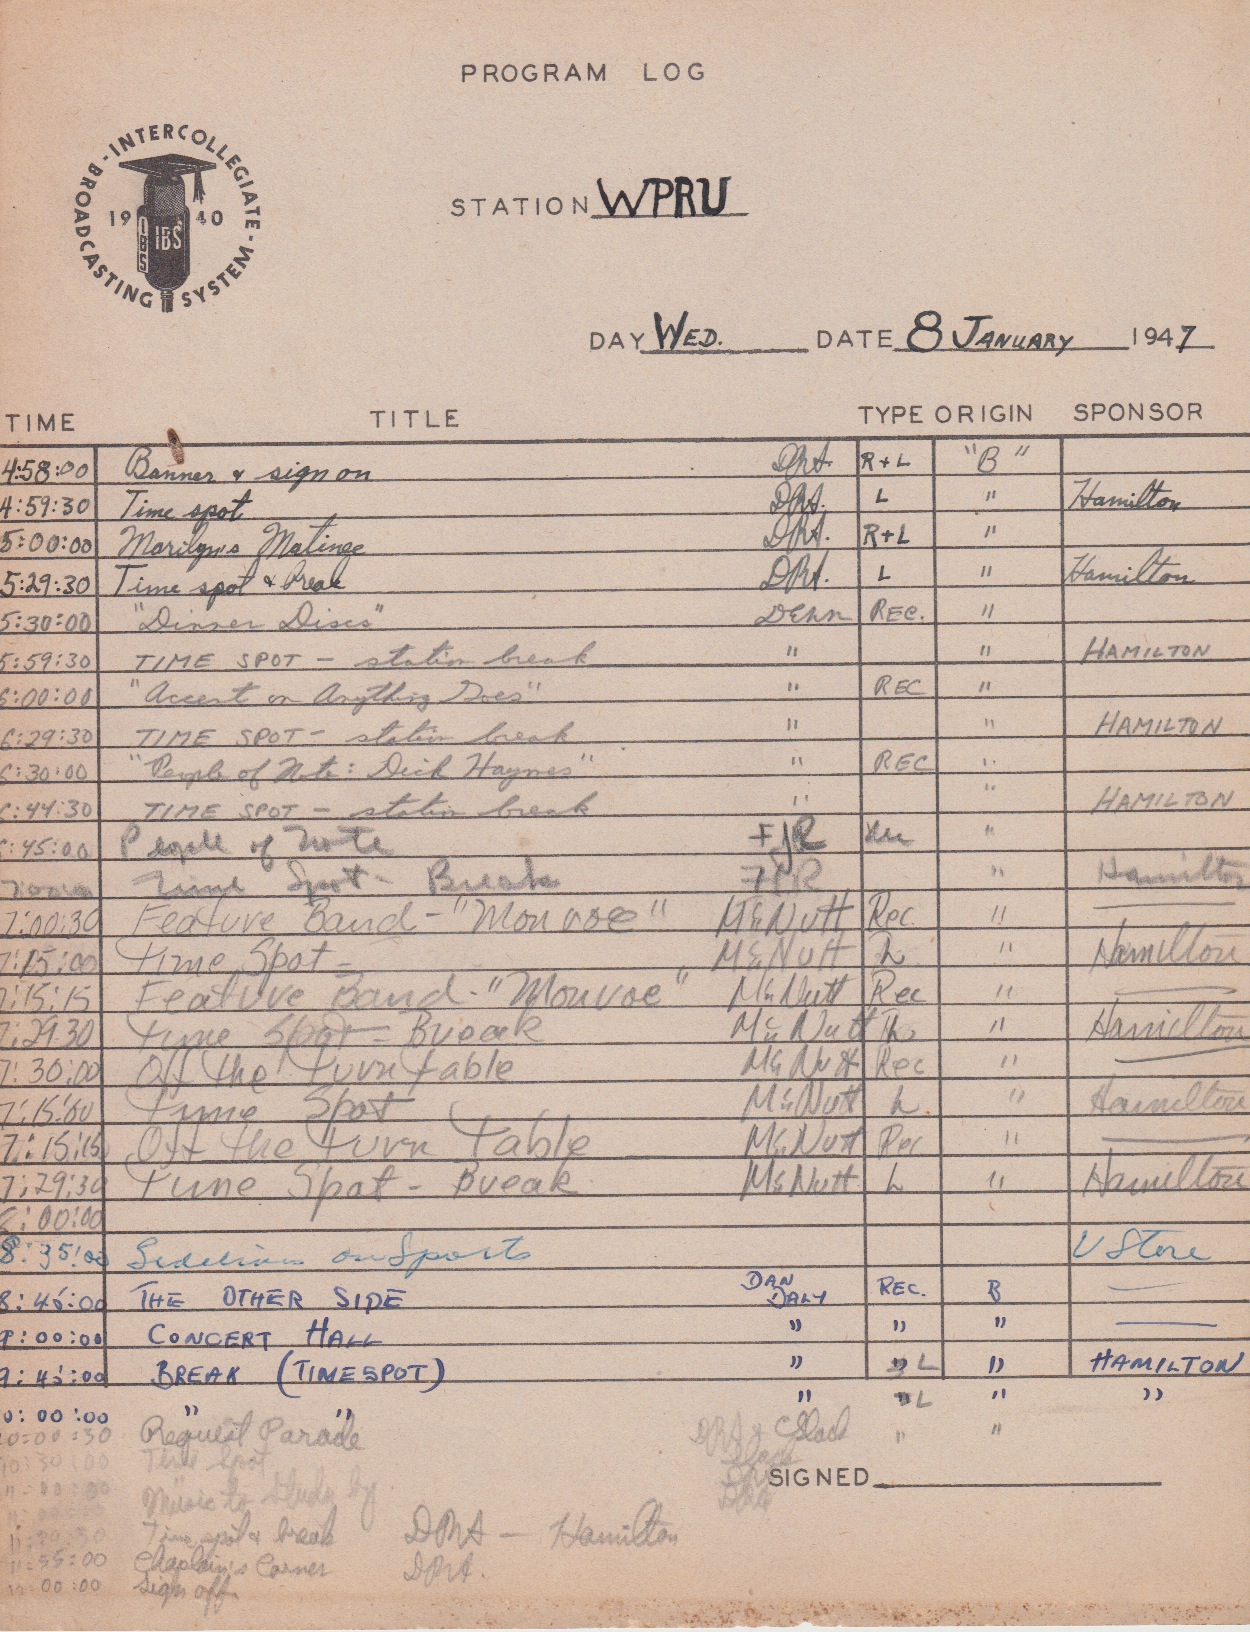 PROGRAM LOG
INTERCOLLEGIATE BROADCASTING SYSTEM
1940
IBS
IBS
STATION WPRU
DAY WED. DATE 8 JANUARY 1947
TIME TITLE TYPE ORIGIN SPONSOR
4:58:00 Banner & sign on DRA. R+L "B"
4:59:30 Time spot DRA. L " Hamilton
5:00:00 Marilyn's Matinee DRA. R+L "
5:29:30 Time spot & break DRA. L " Hamilton
5:30:00 "Dinner Discs" REC. "
5:59:30 TIME SPOT - station break " " HAMILTON
6:00:00 "Accent on Anything Goes" " REC "
6:29:30 TIME SPOT - station break " HAMILTON
6:30:00 "People of Note: Dick Haymes" " REC "
6:44:30 TIME SPOT - station break " " HAMILTON
6:45:00 People of Note FJR Rec "
Time Spot - Break FJR " Hamilton
7:00:30 Feature Band - "Monroe" McNutt Rec. "
7:15:00 Time Spot - McNutt L " Hamilton
7:15:15 Feature Band - "Monroe" McNutt Rec "
7:29:30 Time Spot - Break McNutt L " Hamilton
7:30:00 Off the Turn table McNutt Rec "
7:15:00 Time Spot McNutt L " Hamilton
7:15:15 Off the Turn Table McNutt Rec "
7:29:30 Time Spot - Break McNutt L " Hamilton
8:00:00
8:35:00 Sidelines on Sports U Store
8:45:00 THE OTHER SIDE DAN DALY REC. B —
9:00:00 CONCERT HALL " " " —
9:45:00 BREAK (TIMESPOT) " L " HAMILTON
10:00:00 " " " L " "
10:00:30 Request Parade DRA & Slack " "
10:30:00 Time Spot Slack
Music to Study by
11:29:30 Time spot & break DRA - Hamilton
11:55:00 Chaplain's Corner DRA.
12:00:00 Sign off.
SIGNED